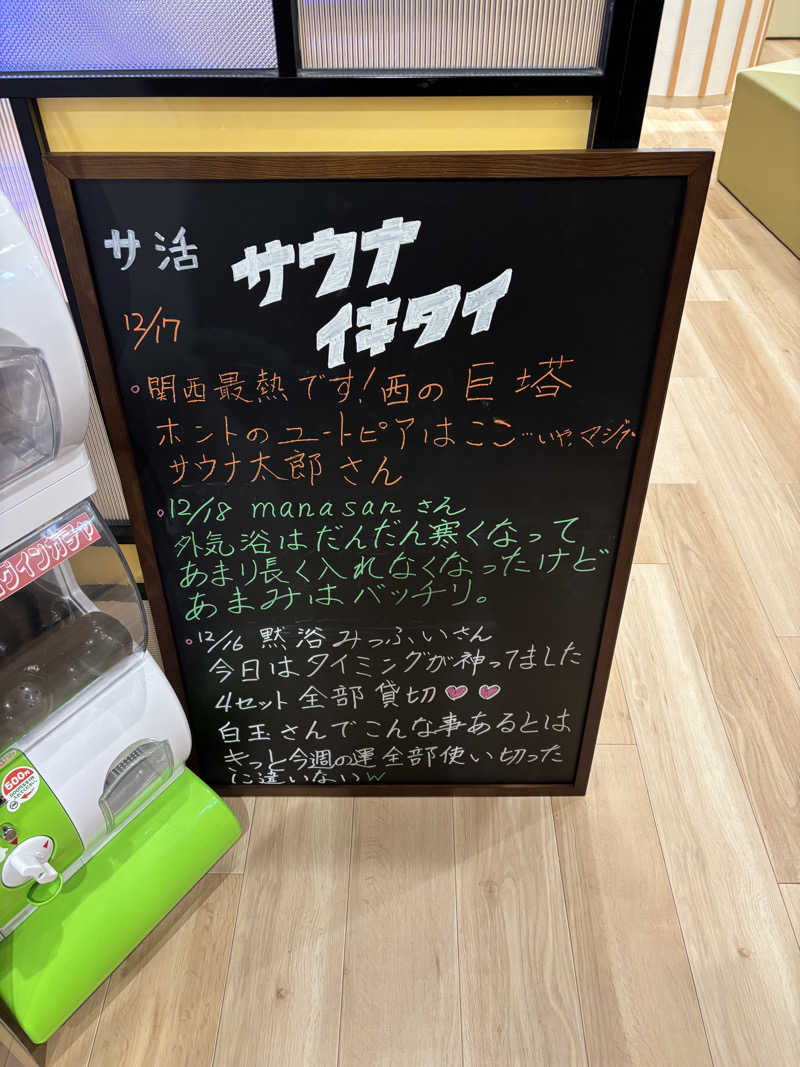 サ活 サウナ
イキタイ
12/17
関西最熱です!西の巨塔
ホントのユートピアはここ…いや、マジで
サウナ太郎さん
12/18 manasanさん
外気浴はだんだん寒くなって
あまり長く入れなくなったけど
あまみはバッチリ。
12/16 黙浴みっふぃさん
今日はタイミングが神ってました
4セット全部貸切
白玉さんでこんな事あるとは
きっと今週の運全部使い切った
に違いないw
インガチャ
500